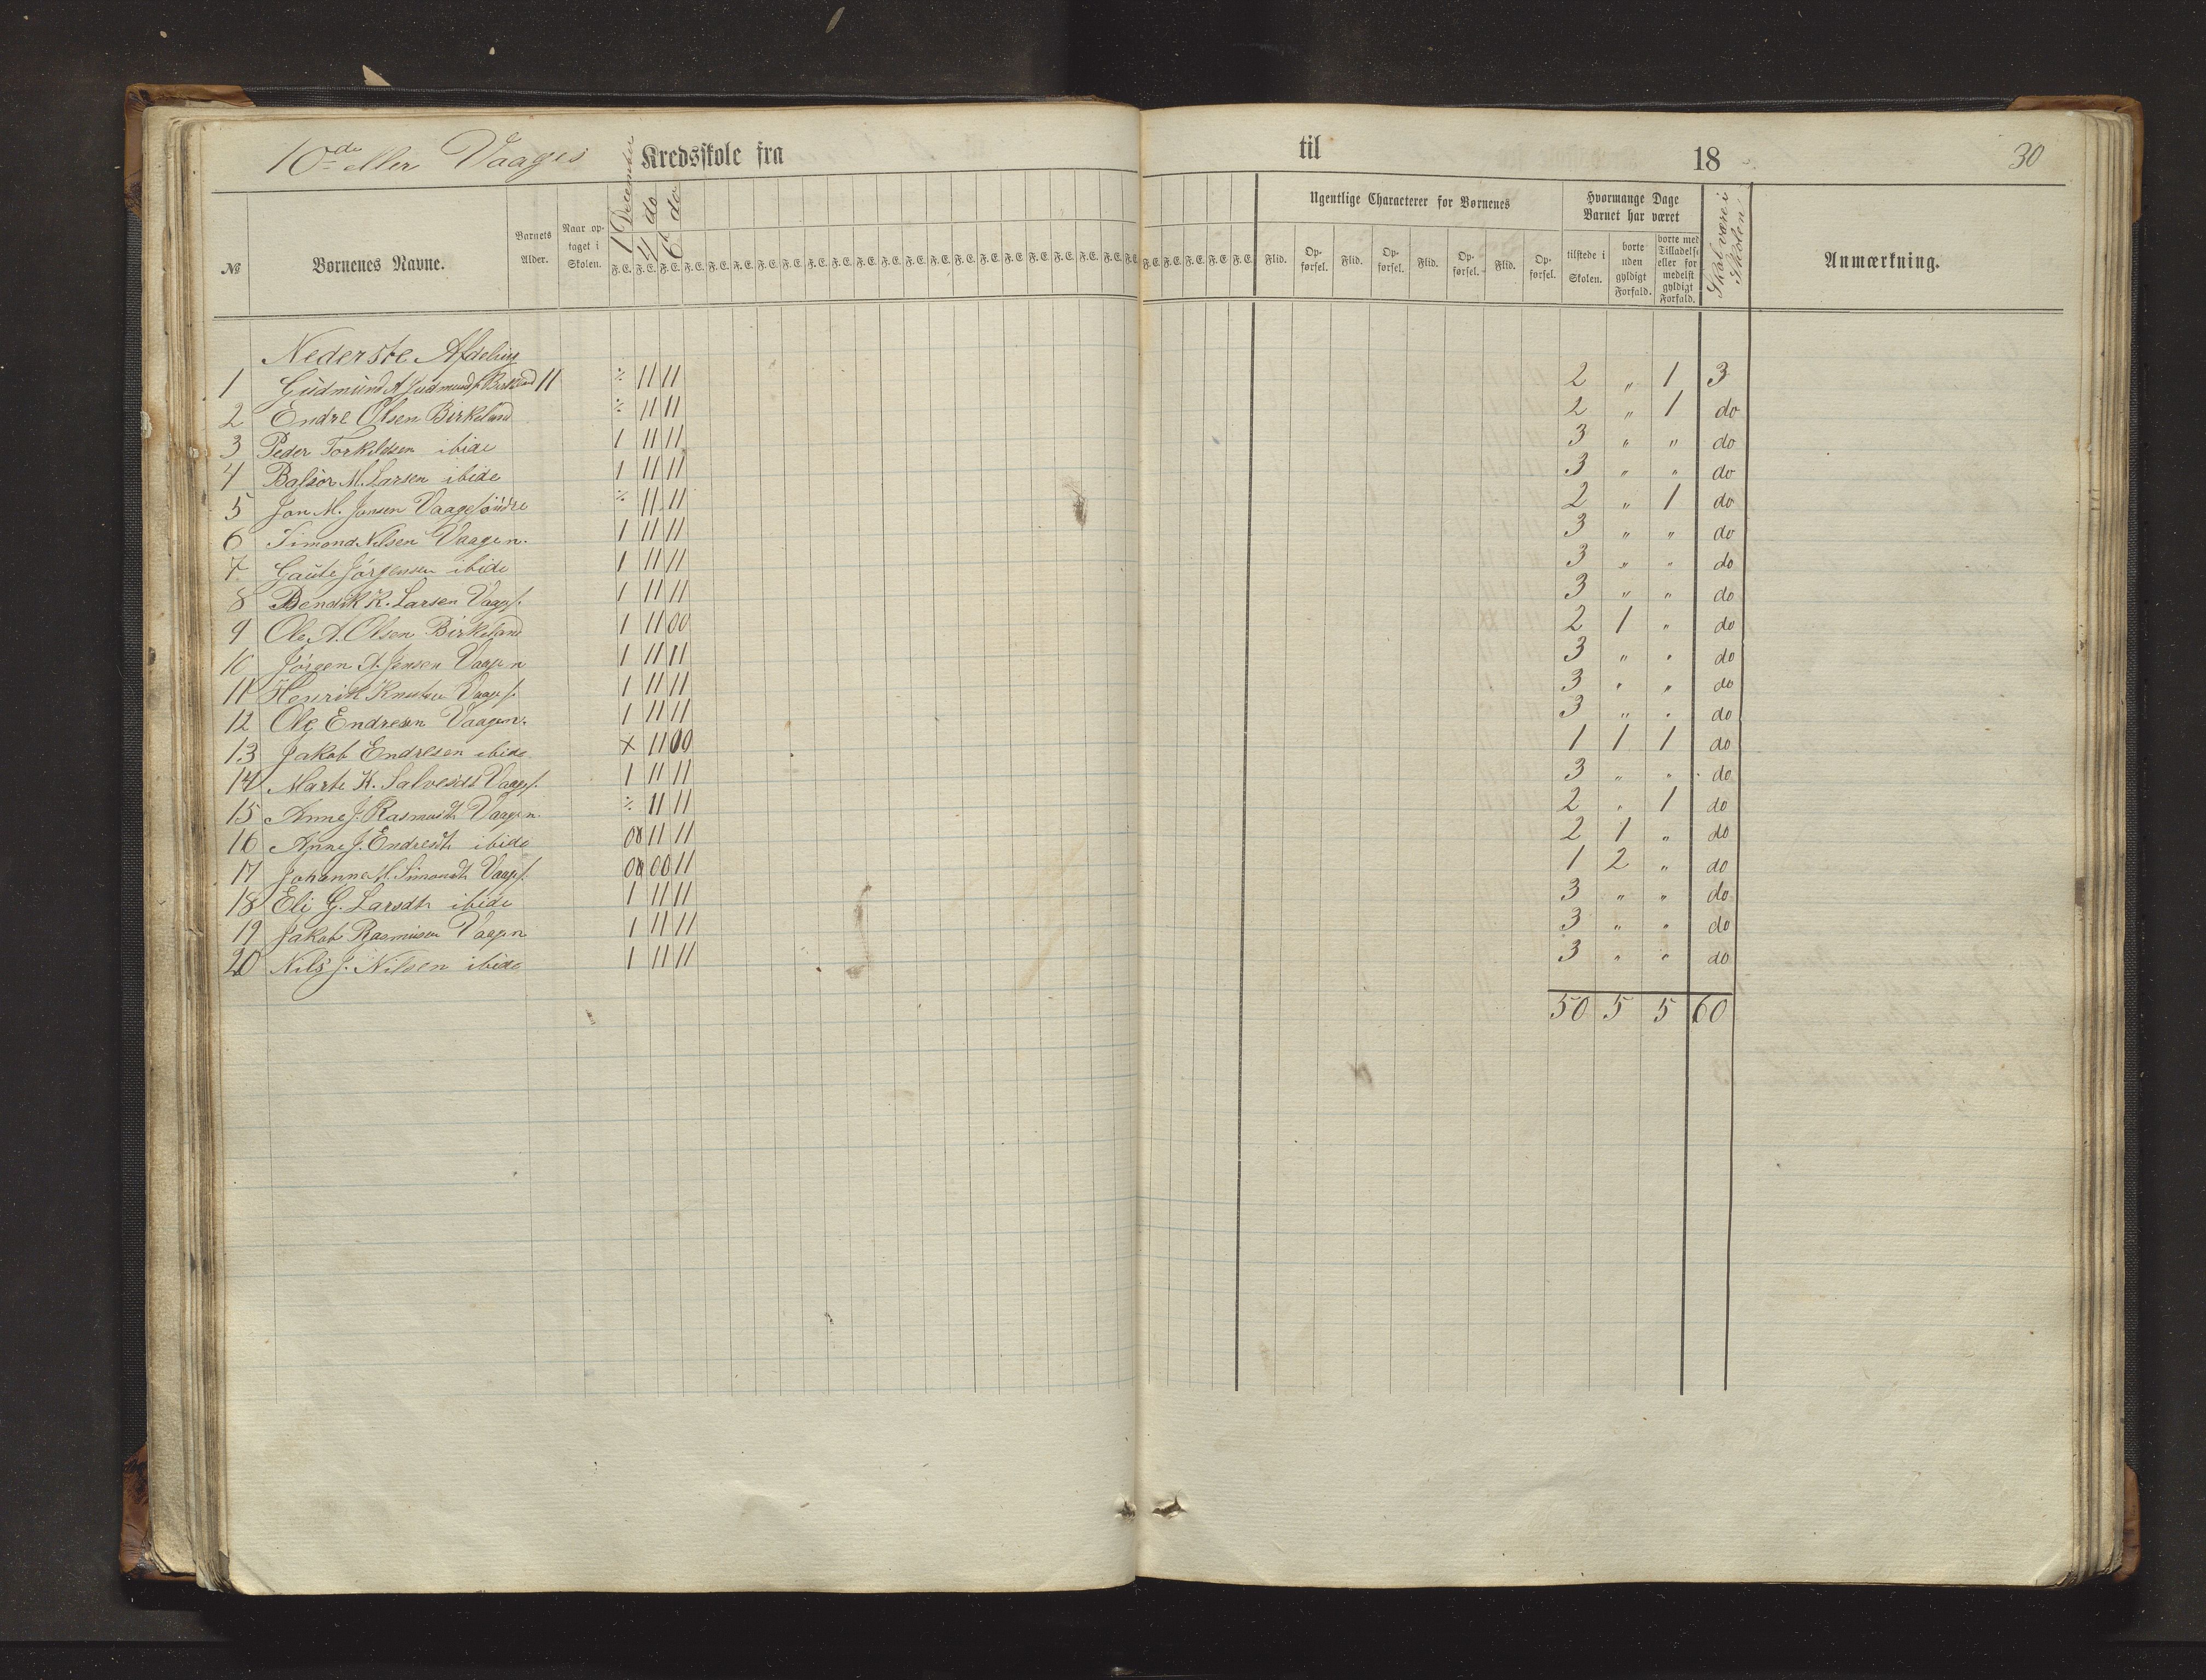 10de eller Vaages Kredsskole fra til 18 30
№ Børnenes Navne. Barnets Alder. Naar optaget i Skolen. 1 December 4 do 6 do Ugentlige Characterer for Børnenes Hvormange Dage Barnet har været Skal være i Skolen Anmærkning.
F.E. F.E. F.E. F.E. F.E. F.E. F.E. F.E. F.E. F.E. F.E. F.E. F.E. F.E. F.E. F.E. F.E. F.E. F.E. F.E. F.E. F.E. F.E. F.E. F.E. F.E. Flid. Opførsel. Flid. Opførsel. Flid. Opførsel. Flid. Opførsel. tilstede i Skolen. borte uden gyldigt Forfald. borte med Tilladelse eller for medelst gyldigt Forfald.
Nederste Afdeling
1 Gudmund A Gudmunds. Birkeland 11 ٪ 11 11 2 „ 1 3
2 Endre Olsen Birkeland ٪ 11 11 2 „ 1 do
3 Peder Torkildsen ibide 1 11 11 3 „ „ do
4 Balsor M. Larsen ibide 1 11 11 3 „ „ do
5 Jon M. Jonsen Vaage söndre ٪ 11 11 2 „ 1 do
6 Simond Nilsen Vaage n. 1 11 11 3 „ „ do
7 Gaute Jörgensen ibide 1 11 11 3 „ „ do
8 Bendik K. Larsen Vaage s. 1 11 11 3 „ „ do
9 Ole A. Olsen Birkeland 1 11 00 2 1 „ do
10 Jörgen A. Jensen Vaage n 1 11 11 3 „ „ do
11 Henrik Knutsen Vaage s. 1 11 11 3 „ „ do
12 Ole Endresen Vaage n. 1 11 11 3 „ „ do
13 Jakob Endresen ibide x 11 00 1 1 1 do
14 Marte K. Salvesdt Vaage s. 1 11 11 3 „ „ do
15 Anne J. Rasmusdt. Vaage n ٪ 11 11 2 „ 1 do
16 Anne J. Endresdt. ibide 00 11 11 2 1 „ do
17 Johanne M. Simonsdt Vaage s. 00 00 11 1 2 „ do
18 Eli G. Larsdt. ibide 1 11 11 3 „ „ do
19 Jakob Rasmusen Vaage n 1 11 11 3 „ „ do
20 Nils J. Nilsen ibide 1 11 11 3 „ „ do
50 5 5 60